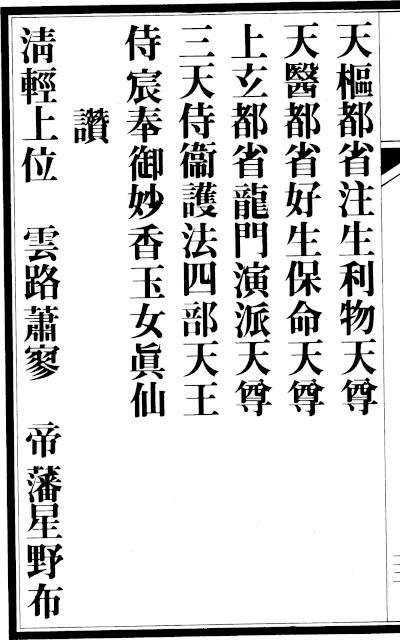 天樞都省注生利物天尊
天醫都省好生保命天尊
上玄都省龍門演派天尊
三天侍衞護法四部天王
侍宸奉御妙香玉女眞仙
讚
淸輕上位　雲路蕭寥　帝藩星野布